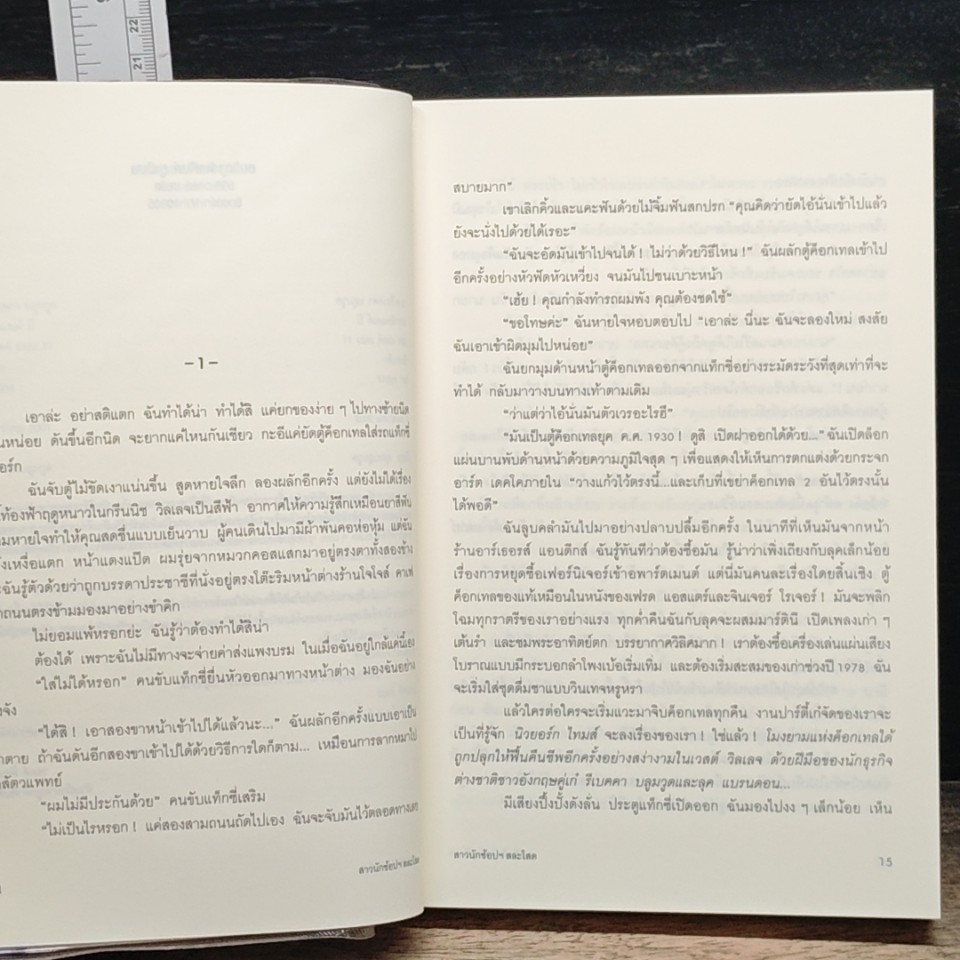 22
21
–1–
เอาล่ะ อย่าสติแตก ฉันทำได้น่า ทำได้สิ แค่ยกของง่าย ๆ ไปทางซ้ายนิด
หน่อย ดันขึ้นอีกนิด จะยากแค่ไหนกันเชียว กะอีแค่ยัดตู้ค็อกเทลใส่รถแท็กซี่
อร์ก
ฉันจับตู้ไม้ขัดเงาแน่นขึ้น สูดหายใจลึก ลองผลักอีกครั้ง แต่ยังไม่ได้เรื่อง
ท้องฟ้าฤดูหนาวในกรีนนิช วิลเลจเป็นสีฟ้า อากาศให้ความรู้สึกเหมือนยาสีฟัน
มหายใจทำให้คุณสดชื่นแบบเย็นวาบ ผู้คนเดินไปมามีผ้าพันคอห่อหุ้ม แต่ฉัน
งเหงื่อแตก หน้าแดงแป๊ด ผมรุ่ยจากหมวกคอสแสกมาอยู่ตรงตาทั้งสองข้าง
ะฉันรู้ตัวด้วยว่าถูกบรรดาประชาชีที่นั่งอยู่ตรงโต๊ะริมหน้าต่างร้านโจโจส์ คาเฟ่
ถนนตรงข้ามมองมาอย่างขำคิก
ไม่ยอมแพ้หรอกย่ะ ฉันรู้ว่าต้องทำได้สิน่า
ต้องได้ เพราะฉันไม่มีทางจะจ่ายค่าส่งแพงบรม ในเมื่อฉันอยู่ใกล้แค่นี้เอง
“ใส่ไม่ได้หรอก” คนขับแท็กซี่ยื่นหัวออกมาทางหน้าต่าง มองฉันอย่าง
จัง
“ได้สิ ! เอาสองขาหน้าเข้าไปได้แล้วนะ...” ฉันผลักอีกครั้งแบบเอาเป็น
าตาย ถ้าฉันดันอีกสองขาเข้าไปได้ด้วยวิธีการใดก็ตาม... เหมือนการลากหมาไป
สัตวแพทย์
“ผมไม่มีประกันด้วย” คนขับแท็กซี่เสริม
“ไม่เป็นไรหรอก ! แค่สองสามถนนถัดไปเอง ฉันจะจับมันไว้ตลอดทางเลย
สาวนักช้อปฯ สละโสด
สบายมาก”
เขาเลิกคิ้วและแคะฟันด้วยไม้จิ้มฟันสกปรก “คุณคิดว่ายัดไอ้นั่นเข้าไปแล้ว
ยังจะนั่งไปด้วยได้เรอะ”
“ฉันจะอัดมันเข้าไปจนได้ ! ไม่ว่าด้วยวิธีไหน !” ฉันผลักตู้ค็อกเทลเข้าไป
อีกครั้งอย่างหัวฟัดหัวเหวี่ยง จนมันไปชนเบาะหน้า
“เฮ้ย ! คุณกำลังทำรถผมพัง คุณต้องชดใช้”
“ขอโทษค่ะ” ฉันหายใจหอบตอบไป “เอาล่ะ นี่นะ ฉันจะลองใหม่ สงสัย
ฉันเอาเข้าผิดมุมไปหน่อย”
ฉันยกมุมด้านหน้าตู้ค็อกเทลออกจากแท็กซี่อย่างระมัดระวังที่สุดเท่าที่จะ
ทำได้ กลับมาวางบนทางเท้าตามเดิม
“ว่าแต่ว่าไอ้นั่นมันตัวเวรอะไรฮึ”
“มันเป็นตู้ค็อกเทลยุค ค.ศ. 1930 ! ดูสิ เปิดฝาออกได้ด้วย...” ฉันเปิดล็อก
แผ่นบานพับด้านหน้าด้วยความภูมิใจสุด ๆ เพื่อแสดงให้เห็นการตกแต่งด้วยกระจก
อาร์ต เดคโคภายใน “วางแก้วไว้ตรงนี้...และเก็บที่เขย่าค็อกเทล 2 อันไว้ตรงนั้น
ได้พอดี”
ฉันลูบคลำมันไปมาอย่างปลาบปลื้มอีกครั้ง ในนาทีที่เห็นมันจากหน้า
ร้านอาร์เธอรส์ แอนตีกส์ ฉันรู้ทันทีว่าต้องซื้อมัน รู้น่าว่าเพิ่งเถียงกับลุคเล็กน้อย
เรื่องการหยุดซื้อเฟอร์นิเจอร์เข้าอพาร์ตเมนต์ แต่นี่มันคนละเรื่องโดยสิ้นเชิง ตู้
ค็อกเทลของแท้เหมือนในหนังของเฟรด แอสแตร์และจินเจอร์ โรเจอร์ ! มันจะพลิก
โฉมทุกราตรีของเราอย่างแรง ทุกค่ำคืนฉันกับลุคจะผสมมาร์ตินี เปิดเพลงเก่า ๆ
เต้นรำ และชมพระอาทิตย์ตก บรรยากาศวิลิศมาก ! เราต้องซื้อเครื่องเล่นแผ่นเสียง
โบราณแบบมีกระบอกลำโพงเบ้อเริ่มเทิ่ม และต้องเริ่มสะสมของเก่าช่วงปี 1978 ฉัน
จะเริ่มใส่ชุดดื่มชาแบบวินเทจหรูหรา
แล้วใครต่อใครจะเริ่มแวะมาจิบค็อกเทลทุกคืน งานปาร์ตี้เก๋จัดของเราจะ
เป็นที่รู้จัก นิวยอร์ก ไทมส์ จะลงเรื่องของเรา ! ใช่แล้ว ! โมงยามแห่งค็อกเทลได้
ถูกปลุกให้ฟื้นคืนชีพอีกครั้งอย่างสง่างามในเวสต์ วิลเลจ ด้วยฝีมือของนักธุรกิจ
ต่างชาติชาวอังกฤษคู่เก๋ รีเบคคา บลูมวูดและลุค แบรนดอน...
มีเสียงปึ้งปั้งดังลั่น ประตูแท็กซี่เปิดออก ฉันมองไปงง ๆ เล็กน้อย เห็น
สาวนักช้อปฯ สละโสด
15